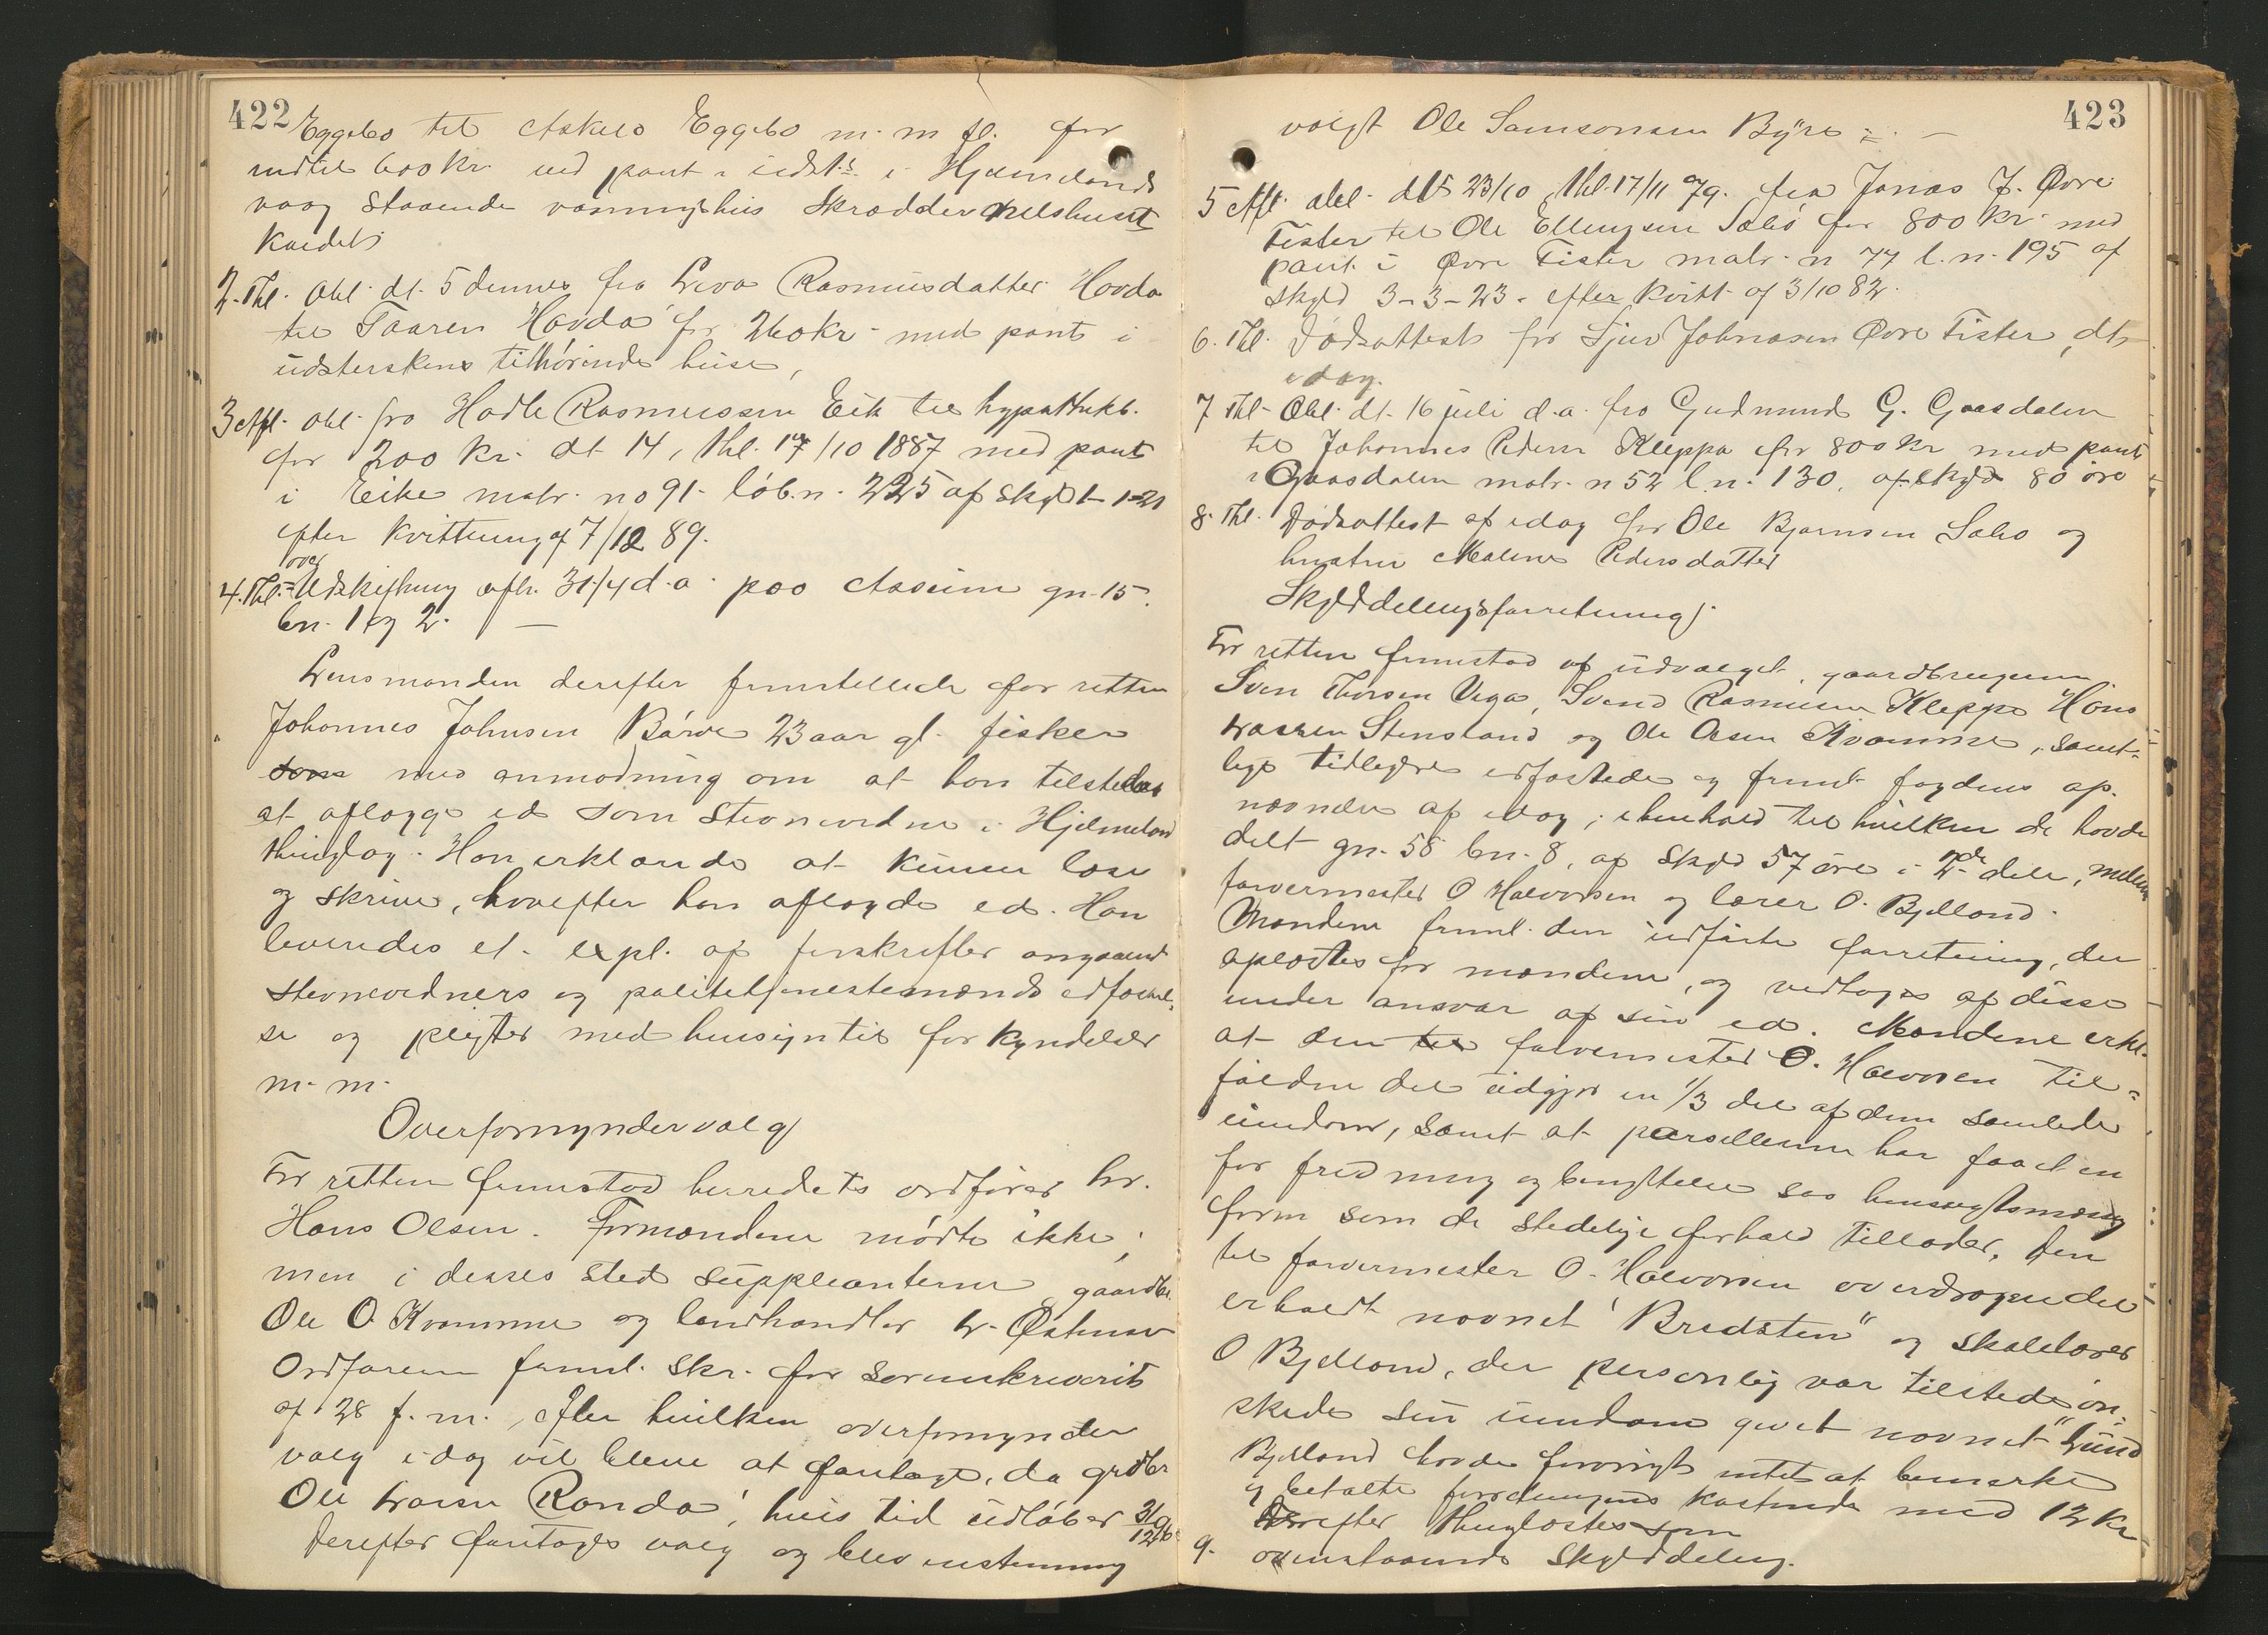 422
Eggebø til Askild Eggebø m. m fl. for
indtil 600 kr. ved pant i udst.s i Hjelmelands
vaag staaende vaaningshus Skrædder Nilshuset
kaldet.
2. Thl. obl. dt. 5 dennes fra Liva Rasmusdatter Hovda
til Taaren Hovda for 260 kr. med pant i
udsterskens tilhørende huse,
3 Afl. obl. fra Hadle Rasmussen Eik til hypothekb.
for 200 kr. dt 14, thl. 17/10 1887 med pant
i Eike matr. no 91. løb.n. 225 af skyld t 1-21
efter kvittering af 7/12 89.
4. Thl. over Udskiftning afh. 31/4 d.a. paa Aasum gn. 15.
bn. 1 og 2. —
Lensmanden derefter fremstillede for retten
Johannes Johnsen Børve 23 aar gl. fisker
som med anmodning om at han tilstedes
at aflægge ed som stevnevidne i Hjelmeland
thinglag. Han erklærede at kunne læse
og skrive, hvorefter han aflagde ed. Han
leveredes et expl. af forskrifter angaaende
stevnevidners og politietjenestemænds edfæstel-
se og pligter med hensyn til forkyndelser
m. m.
Overformyndervalg
For retten fremstod herredets ordfører hr.
Hans Olsen. Formændene mødte ikke;
men i disses sted suppleanterne gaardbr.
Ole O. Kvamme og landhandler L. Østhus
Ordføreren freml. skr. fra sorenskriveriet
af 28 f. m., efter hvilken overformynder
valg idag vil blive at foretage, da grdbr
Ole Larsen Randa, hvis tid udløber 31/12 96.
Derefter foretages valg og blev enstemmig
423
valgt Ole Samsonsen Byre =. —
5 Afl. obl. dt 23/10, thl. 17/11 79. fra Jonas J. Øvre
Fister til Ole Ellingsen Sæbø for 800 kr. med
pant i Øvre Fister matr. n 77 l. n. 195 af
skyld 3-3-23. efter kvitt. af 3/10 82.
6. Thl. Dødsattest for Sjur Johnasen Øvre Fister, dt,
idag.
7 Thl. Obl. dt. 16 juli d.a. fra Gudmund G. Gaasdalen
til Johannes Pedersen Kleppa for 800 kr med pant
i Gaasdalen matr. n 52 l. n. 130, af skyld 80 øre
8. Thl. Dødsattest af idag for Ole Bjørnsen Sæbø og
hustru Malene Pedersdatter
Skylddelingsforretning.
For retten fremstod af udvalget, gaardbrugerne
Sven Thorsen Vega, Svend Rasmusen Kleppe Hans
Larsen Stensland og Ole Olsen Kvamme, samt-
lige tidligere edfæstede og freml. fogdens op-
nævnelse af idag, i henhold til hvilken de havde
delt gn. 58 bn. 8, af skyld 57 øre i 2de dele, mellem
farvermester O Halvorsen og lærer O. Bjelland.
Mændene freml. den udførte forretning, der
oplæstes for mændene, og vedtoges af disse
under ansvar af sin ed. Mændene erkl.
at den til farvermester O. Halvorsen til-
faldne del udgjør en 1/3 del af den samlede
eiendom, samt at parsellerne har faaet en
for fredning og benyttelse saa hensigtsmæssig
form som de stedlige forhold tillader. Den
til farvermester O. Halvorsen overdragne del
erholdt navnet "Bredsten" og skolelærer
O Bjelland, der personlig var tilstede øn-
skede sin eiendom givet navnet "Lund
Bjelland havde forøvrigt intet at bemerke
og betalte forretningens kostende med 12 kr
Derefter thinglæstes som
9. ovenstaaende skylddeling.